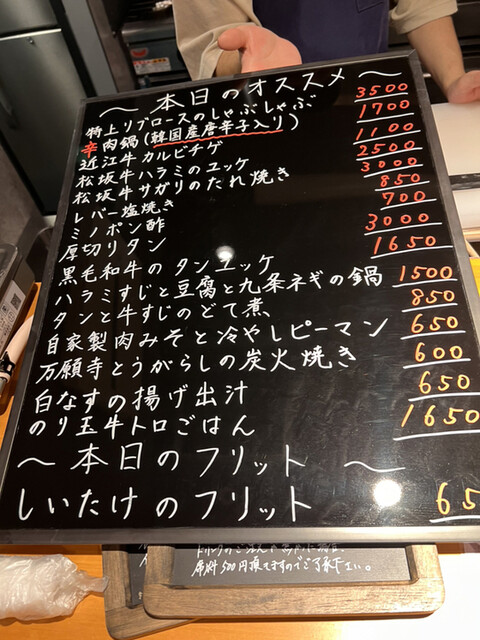 〜本日のオススメ〜
特上リブロースのしゃぶしゃぶ 3500
辛肉鍋(韓国産唐辛子入り) 1700
近江牛カルビチゲ 1100
松坂牛ハラミのユッケ 2500
松坂牛サガリのたれ焼き 3000
レバー塩焼き 850
ミノポン酢 700
厚切りタン 3000
黒毛和牛のタンユッケ 1650
ハラミすじと豆腐と九条ネギの鍋 1500
タンと牛すじのどて煮 850
自家製肉みそと冷やしピーマン 650
万願寺とうがらしの炭火焼き 600
白なすの揚げ出汁 650
のり玉牛トロごはん 1650
〜本日のフリット 〜
しいたけのフリット 65
ドリンクのご注文
席料500円頂きますのでご了承下さい。